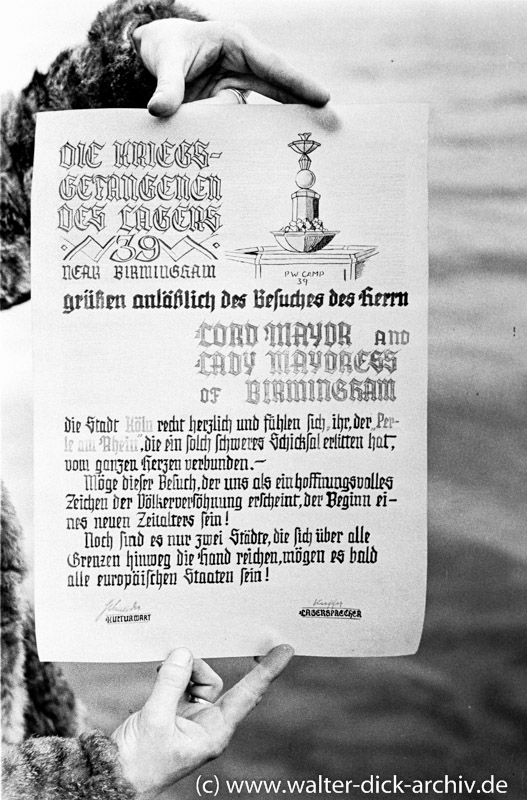 DIE KRIEGS-
GEFANGENEN
DES LAGERS
39
NEAR BIRMINGHAM
P.W. CAMP
39
grüßen anläßlich des Besuches des Herrn
LORD MAYOR AND
LADY MAYORESS
OF BIRMINGHAM
die Stadt Köln recht herzlich und fühlen sich, ihr, der „Per-
le am Rhein", die ein solch schweres Schicksal erlitten hat,
vom ganzen Herzen verbunden.—
Möge dieser Besuch, der uns als ein hoffnungsvolles
Zeichen der Völkerversöhnung erscheint, der Beginn ei-
nes neuen Zeitalters sein!
Noch sind es nur zwei Städte, die sich über alle
Grenzen hinweg die Hand reichen, mögen es bald
alle europäischen Staaten sein!
KULTURWART
LAGERSPRECHER
(c) www.walter-dick-archiv.de